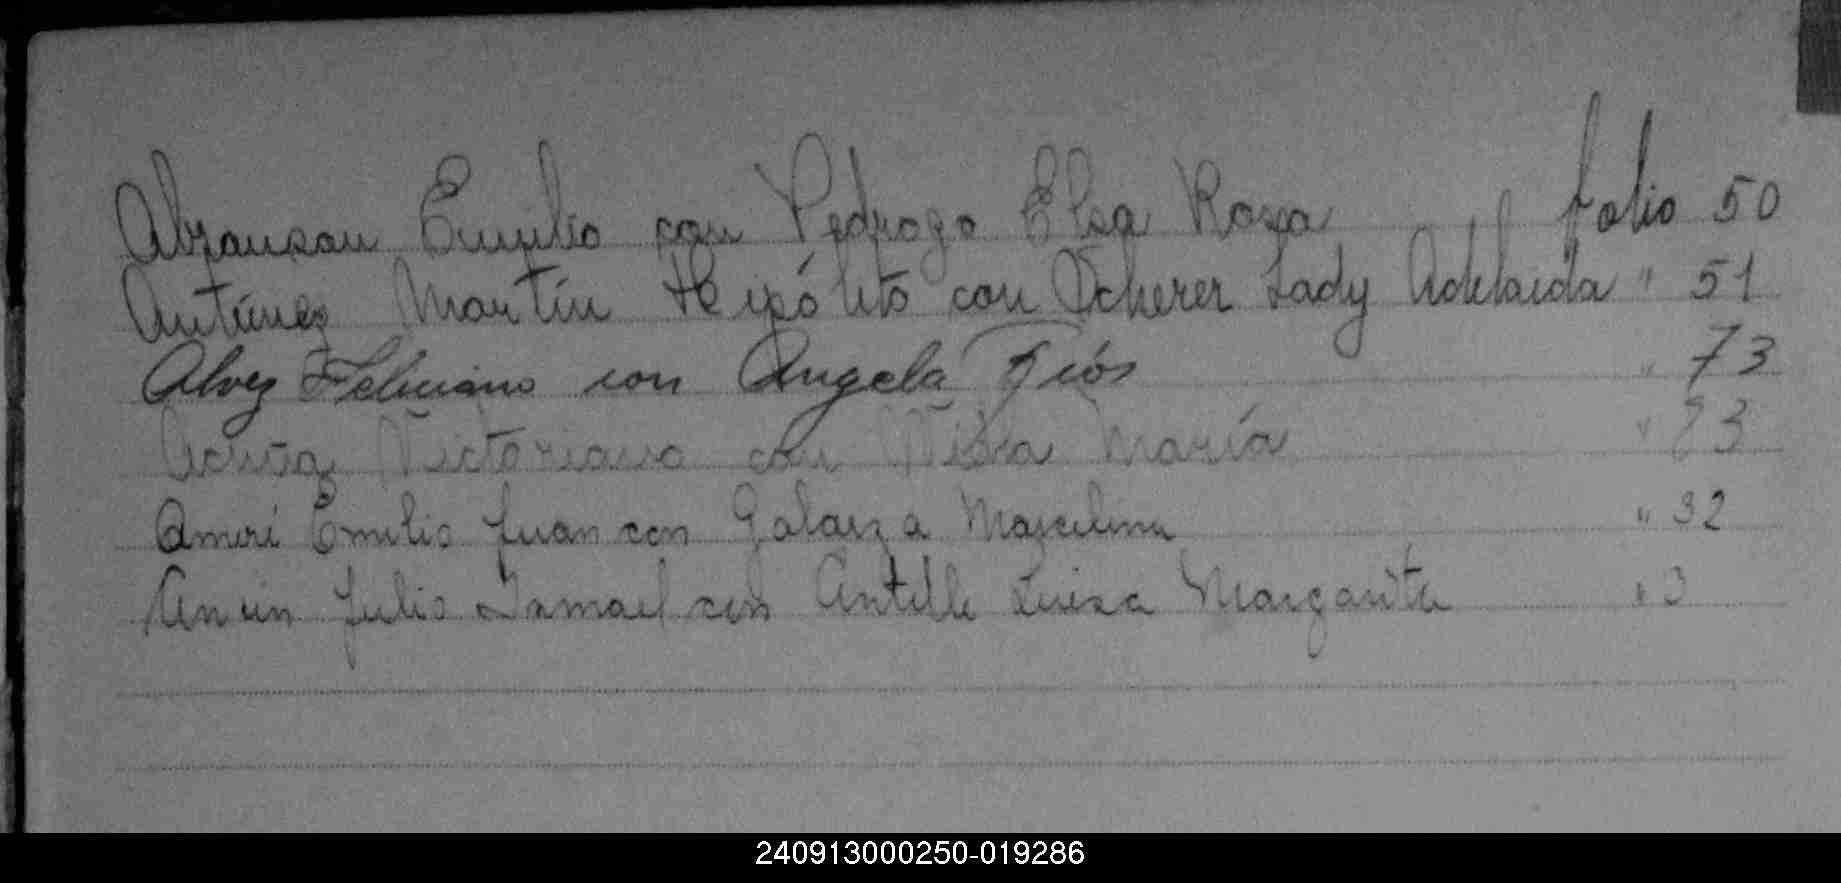 Abransan Emilio con Pedrozo Elsa Rosa folio 50
Antúnez Martín Hipólito con Scherer Lady Adelaida " 51
Alvez Feliciano con Angela Ríos " 73
Acuña Victoriano con María " 23
Emilio Juan con Galarza Marcelina " 32
Julio Ismael con Antille Luisa Margarita " 3
240913000250-019286